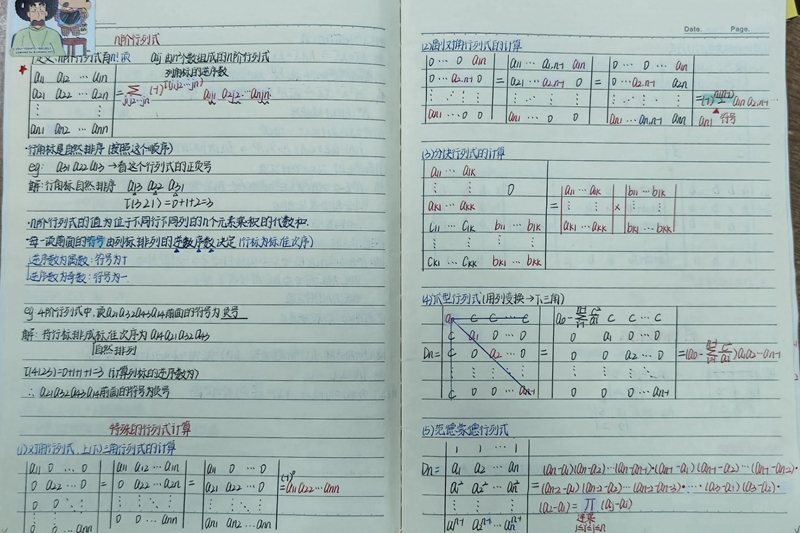 n阶行列式
定义:n阶行列式有n!项 aij 由n²个数组成的n阶行列式
列角标的逆序数
a11 a12 … a1n
a21 a22 … a2n
⋮ ⋮ ⋮
an1 an2 … ann
= Σ j1j2…jn (-1)^τ(j1j2…jn) a1j1 a2j2 … anjn
·行角标是自然排序(按照这个顺序)
eg: a31 a22 a13 →看这个行列式的正负号
解:行角标自然排序 a13 a22 a31
τ(321)=0+1+2=3
·n阶行列式的值为位于不同行不同列的n个元素乘积的代数和.
·每一项前面的符号由列标排列的逆数序数决定(行标为标准次序)
逆序数为偶数:符号为+
逆序数为奇数:符号为-
eg 4阶行列式中,项a21a32a43a14前面的符号为 负号
解:将行标排成标准次序为 a14a21a32a43
自然排列
τ(4123)=0+1+1+1=3 (计算列标的逆序数为)
∴ a21a32a43a14前面的符号为负号
特殊的行列式计算
(1)对角行列式、上(下)三角行列式的计算
a11 0 … 0
0 a22 … 0
⋮ ⋮ ⋱ ⋮
0 0 … ann
=
a11 a12 … a1n
0 a22 … a2n
⋮ ⋮ ⋮
0 0 … ann
=
a11 0 … 0
a21 a22 … 0
⋮ ⋮ ⋮
an1 an2 … ann
=a11a22…ann
Date. Page.
(2)副对角行列式的计算
0 … 0 a1n
0 … a2,n-1 0
⋮ ⋮ ⋮
an1 … 0 0
=
a11 … a1,n-1 a1n
a21 … a2,n-1 0
⋮ ⋮ ⋮
an1 … 0 0
=
0 0 … a1n
0 … a2,n-1 a2n
⋮ ⋮ ⋮
an1 … an,n-1 ann
=(-1)^n(n-1)/2 a1n a2,n-1 …
an1 符号
(3)分块行列式的计算
a11 … a1k
⋮ ⋮ 0
ak1 … akk
c11 … c1k b11 … b1k
⋮ ⋮ ⋮ ⋮
ck1 … ckk bk1 … bkk
=
a11 … a1k
⋮ ⋮
ak1 … akk
×
b11 … b1k
⋮ ⋮
bk1 … bkk
(4)爪型行列式(用列变换→下三角)
Dn=
a0 c c … c
c a1 0 … 0
c 0 a2 … 0
⋮ ⋮ ⋮ ⋱ ⋮
c 0 0 … an-1
=
a0-Σ c²/ai c c … c
0 a1 0 … 0
0 0 a2 … 0
⋮ ⋮ ⋮ ⋱ ⋮
0 0 0 … an-1
=(a0-Σ c²/ai)a1a2…an-1
(5)范德蒙德行列式
Dn=
1 1 … 1
a1 a2 … an
a1² a2² … an²
⋮ ⋮ ⋮
a1^n-1 a2^n-1 … an^n-1
(an-a1)(an-a2)…(an-an-1)·(an-1-a1)(an-1-a2)…(an-1-an-2)
=(an-2-a1)(an-2-a2)…(an-2-an-3)·…·(a3-a1)(a3-a2)·
(a2-a1)= Π (aj-ai)
连乘
1≤i<j≤n